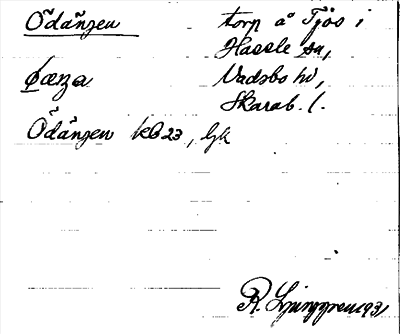 Ödängen torp å Tjös i
Hassle sn,
Vadsbo hd,
Skarab. l.
Ödängen kb 23, lgk
R. Ljunggren 1931